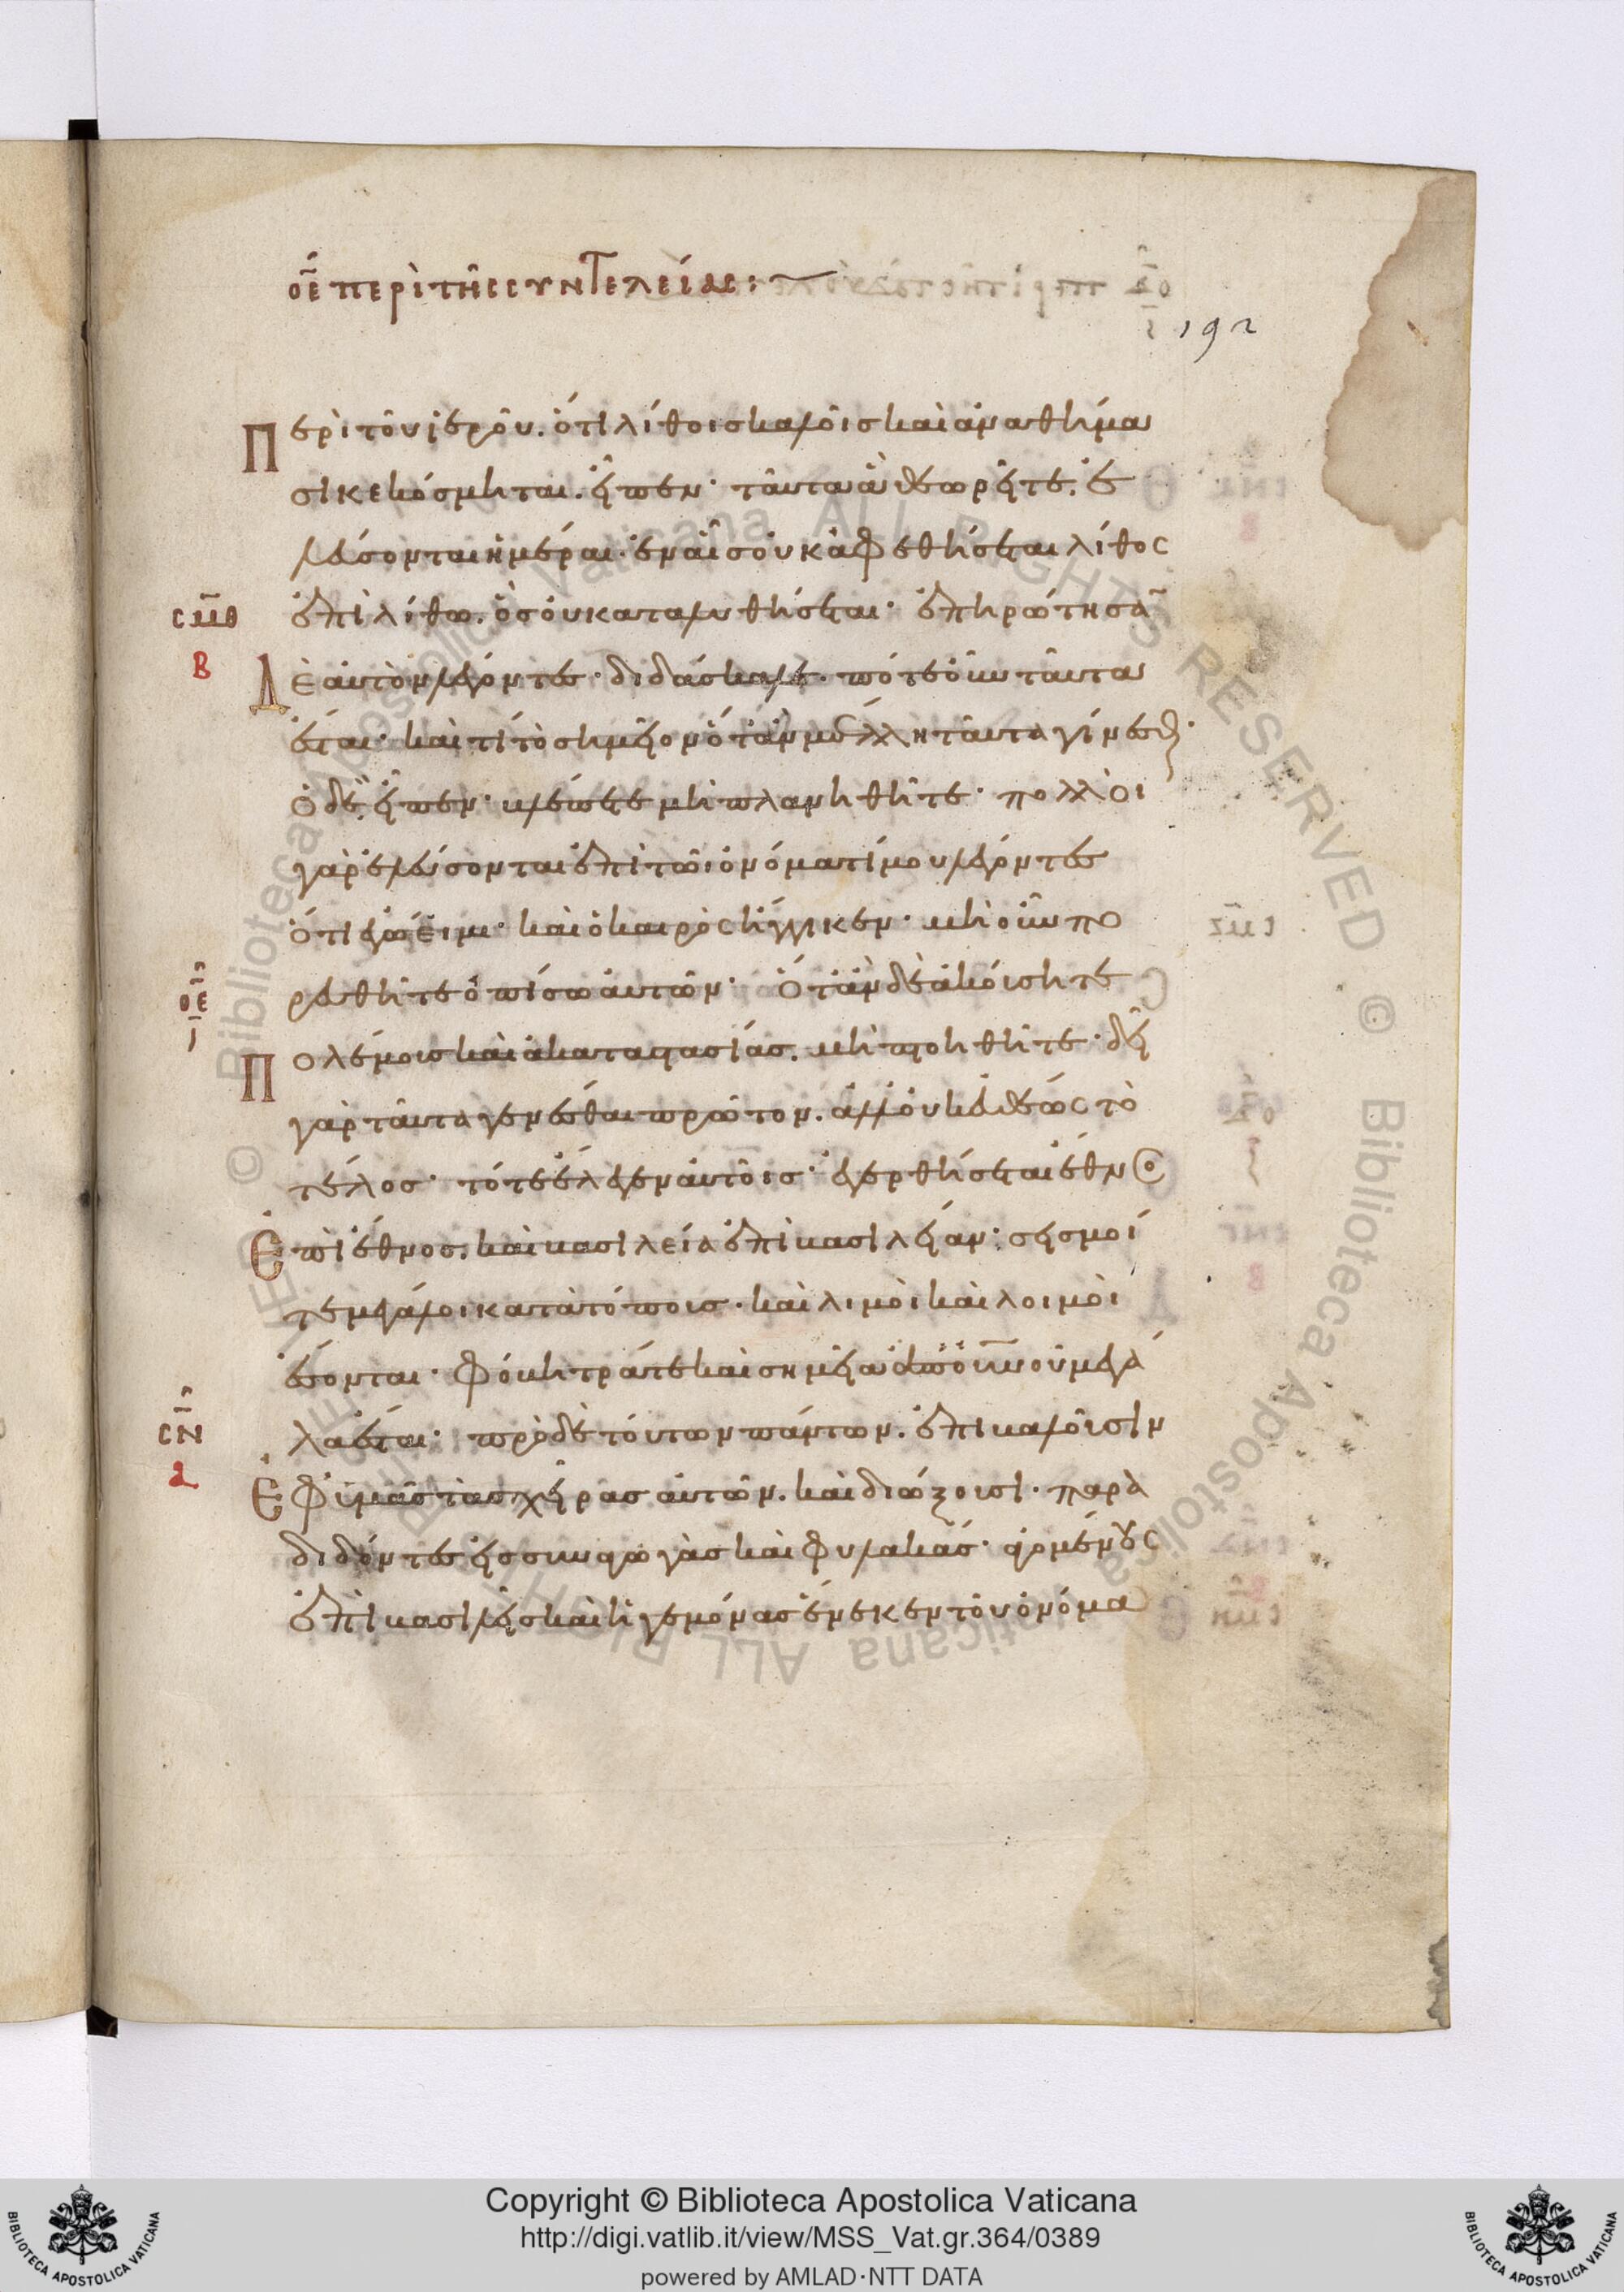 οε περὶ τῆς συντελείας:
192
Περὶ τοῦ ἱεροῦ. ὅτι λίθοις καλοῖς καὶ ἀναθήμα
σι κεκόσμηται. εἶπεν· ταῦτα ἃ θεωρεῖτε. ἐ
λεύσονται ἡμέραι· ἐν αἷς οὐκ ἀφεθήσεται λίθος
σμθ
ἐπὶ λίθω. ὃς οὐ καταλυθήσεται· ἐπηρώτησα̅
β
Δὲ αὐτὸν λέγοντες· διδάσκαλε· πότε οὖν ταῦτα
ἔσται· καὶ τί τὸ σημεῖον ὅταν μέλλη ταῦτα γίνεσθ·
ὁ δὲ εἶπεν· βλέπετε μὴ πλανηθῆτε· πολλοὶ
γὰρ ἐλεύσονται ἐπὶ τῶι ὀνόματί μου λέγοντες
ὅτι ἐγώ εἰμι· καὶ ὁ καιρὸς ἤγγικεν· μὴ οὖν πο
οε
ι
ρευθῆτε ὀπίσω αὐτῶν· ὅταν δὲ ἀκούσητε
Πολέμους καὶ ἀκαταστασίας. μὴ πτοηθῆτε· δεῖ
γὰρ ταῦτα γενέσθαι πρῶτον. ἀλλ οὐκ εὐθέως τὸ
τέλος· τότε ἔλεγεν αὐτοῖς· ἐγερθήσεται ἔθνος
Ἐπὶ ἔθνος. καὶ βασιλεία ἐπὶ βασιλείαν· σεισμοί
τε μεγάλοι κατὰ τόπους· καὶ λιμοὶ καὶ λοιμοὶ
ἔσονται· φόβητρά τε καὶ σημεῖα ἀπὸ οὐ̅νοῦ μεγά
σν
α
λα ἔσται· πρὸ δὲ τούτων πάντων. ἐπιβαλοῦσιν
Ἐφ ὑμᾶς τὰς χεῖρας αὐτῶν. καὶ διώξουσι· παρα
διδόντες εἰς συναγωγὰς καὶ φυλακάς· ἀγομένους
ἐπὶ βασιλεῖς καὶ ἡγεμόνας ἕνεκεν τοῦ ὀνόμα
© Biblioteca Apostolica Vaticana ALL RIGHTS RESERVED © Biblioteca Apostolica Vaticana ALL RIGHTS RESERVED
Copyright © Biblioteca Apostolica Vaticana
http://digi.vatlib.it/view/MSS_Vat.gr.364/0389
powered by AMLAD·NTT DATA
BIBLIOTECA APOSTOLICA VATICANA
BIBLIOTECA APOSTOLICA VATICANA